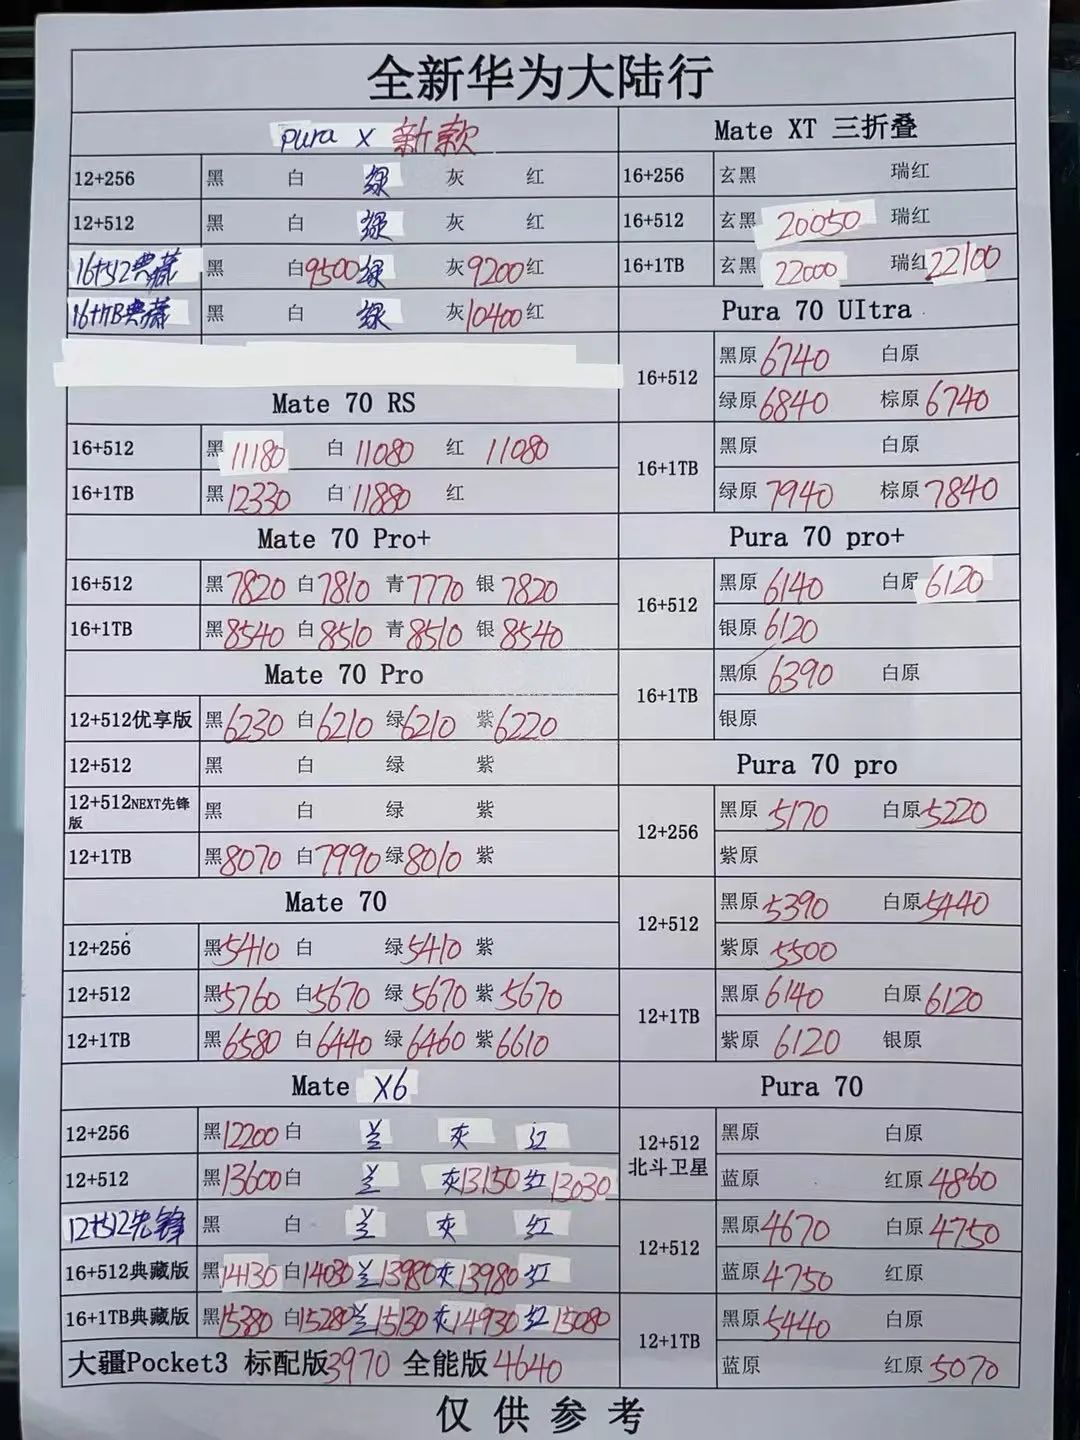 全新华为大陆行
pura X 新款
12+256 黑 白 绿 灰 红
12+512 黑 白 绿 灰 红
16+512典藏 黑 白9500 绿 灰9200 红
16+1TB典藏 黑 白 绿 灰10400 红
Mate 70 RS
16+512 黑11180 白11080 红11080
16+1TB 黑12330 白11880 红
Mate 70 Pro+
16+512 黑7820 白7810 青7770 银7820
16+1TB 黑8540 白8510 青8510 银8540
Mate 70 Pro
12+512优享版 黑6230 白6210 绿6210 紫6220
12+512 黑 白 绿 紫
12+512NEXT先锋版 黑 白 绿 紫
12+1TB 黑8070 白7990 绿8010 紫
Mate 70
12+256 黑5410 白 绿5410 紫
12+512 黑5760 白5670 绿5670 紫5670
12+1TB 黑6580 白6440 绿6460 紫6610
Mate X6
12+256 黑12200 白 兰 灰 红
12+512 黑13600 白 兰 灰13150 红13030
12+512先锋 黑 白 兰 灰 红
16+512典藏版 黑14130 白14030 兰13980 灰13980 红
16+1TB典藏版 黑15380 白15280 兰15130 灰14930 红15080
大疆Pocket3 标配版3970 全能版4640
Mate XT 三折叠
16+256 玄黑 瑞红
16+512 玄黑 20050 瑞红
16+1TB 玄黑 22000 瑞红22100
Pura 70 UItra
16+512
黑原6740 白原
绿原6840 棕原6740
16+1TB
黑原 白原
绿原7940 棕原7840
Pura 70 pro+
16+512
黑原6140 白原6120
银原6120
16+1TB
黑原6390 白原
银原
Pura 70 pro
12+256
黑原5170 白原5220
紫原
12+512
黑原5390 白原5440
紫原5500
12+1TB
黑原6140 白原6120
紫原6120 银原
Pura 70
12+512
北斗卫星
黑原 白原
蓝原 红原4860
12+512
黑原4670 白原4750
蓝原4750 红原
12+1TB
黑原5440 白原
蓝原 红原5070
仅供参考